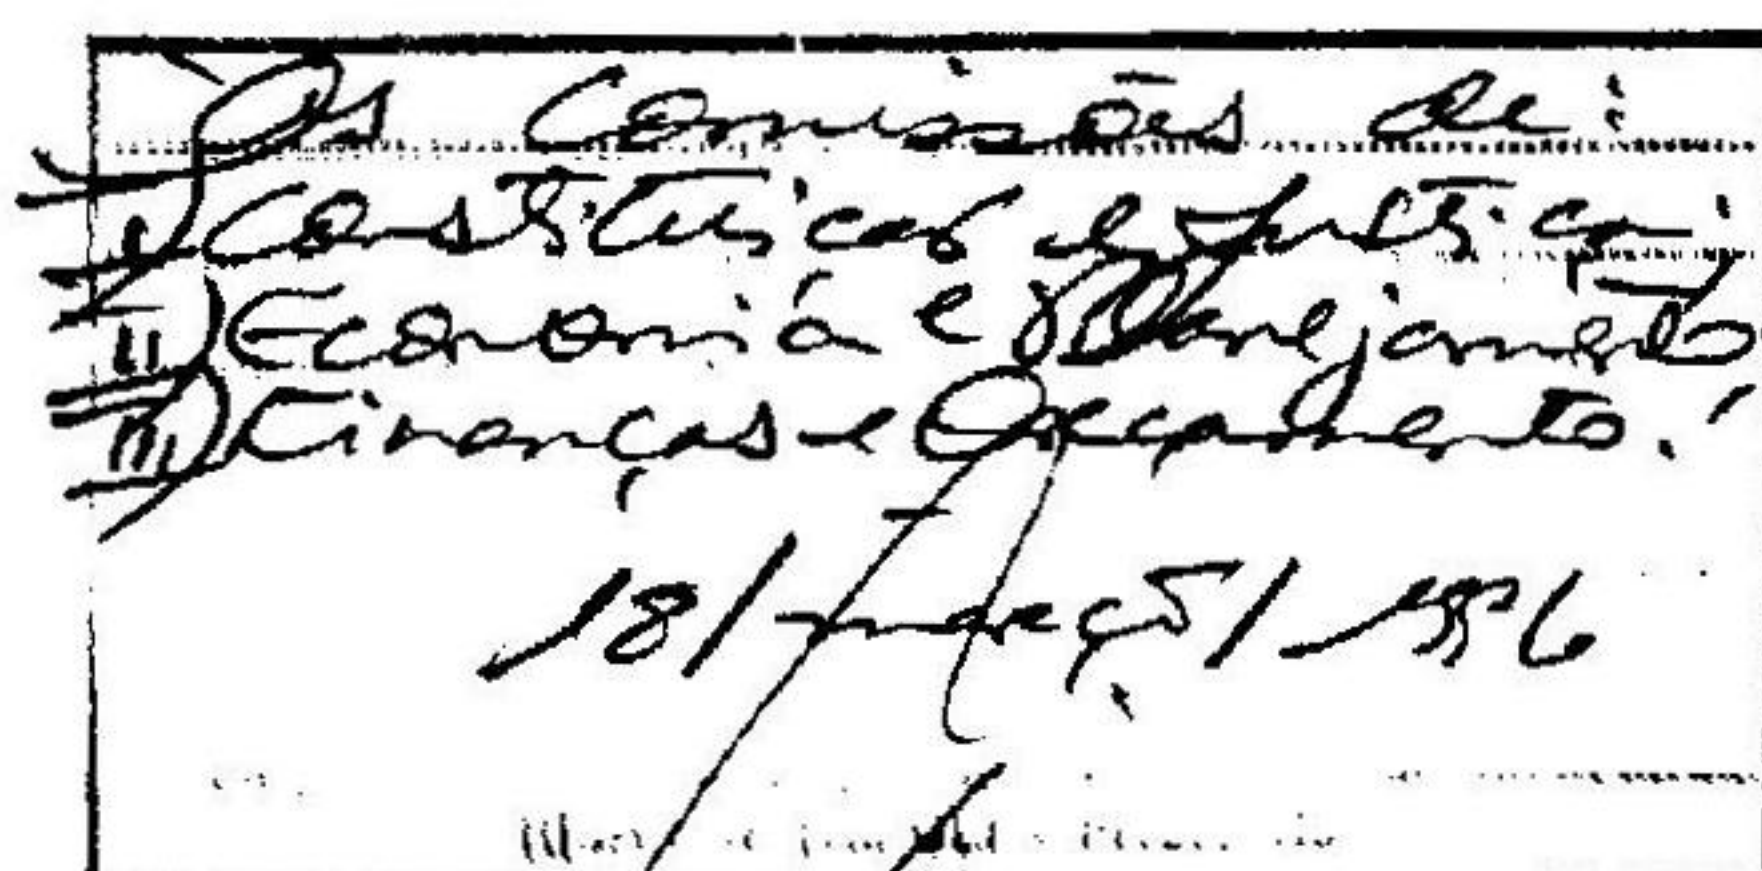 Às Comissões de:
I) Constituição e Justiça;
II) Economia e Planejamento
III) Finanças e Orçamento.
18/março/1996